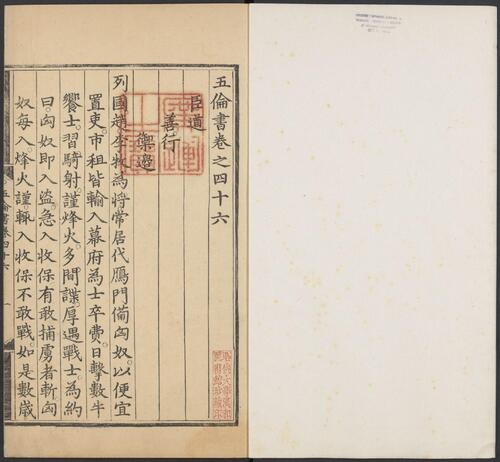 五倫書卷之四十六
臣道
善行
禦邊
列國趙李牧為將常居代鴈門備匈奴以便宜
置吏市租皆輸入幕府為士卒費日擊數牛
饗士習騎射謹烽火多間諜厚遇戰士為約
曰匈奴即入盜急入收保有敢捕虜者斬匈
奴每入烽火謹輒入收保不敢戰如是數歲
五倫書卷四十六
一